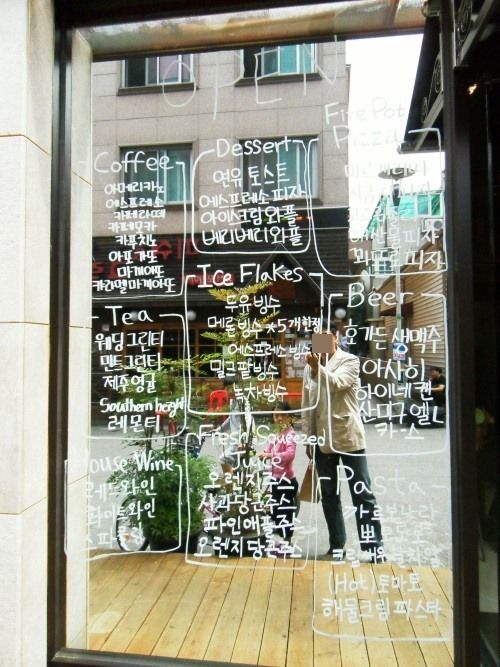 OPEN
Coffee
아메리카노
에스프레소
카페라떼
카페모카
카푸치노
아포가또
마게야또
카라멜마게야또
Tea
웨딩그린티
민트그린티
제주영귤
Southern height
레몬티
House Wine
레드와인
화이트와인
Dessert
연유토스트
에스프레소피자
아이스크림와플
베리베리와플
Ice Flakes
두유빙수
메론빙수 *5개한정
에스프레소빙수
밀크팥빙수
녹차빙수
Fresh Squeezed
Juice
오렌지주스
사과당근주스
파인애플주스
오렌지당근주스
Fire Pot
Pizza
해산물피자
피자
Beer
호가든생맥주
아사히
하이네켄
산미구엘L
카스
Pasta
까르보나라
뽀모도로
크림
(Hot)토마토
해물크림파스타